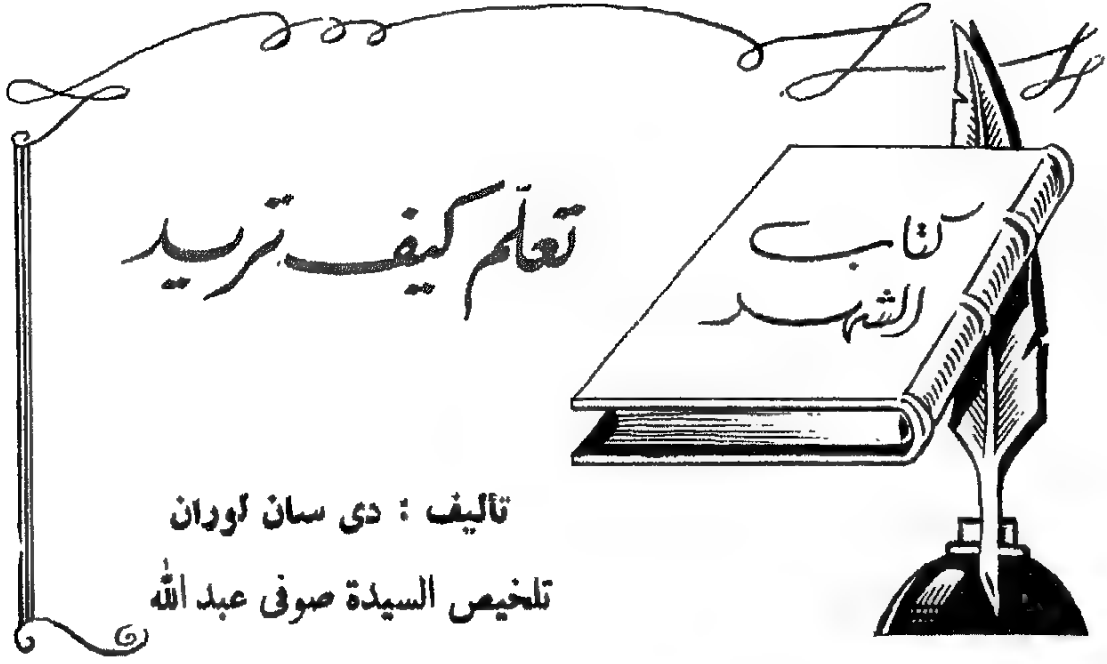 كتاب
الشهر
تعلّم كيف تريد
تأليف : دى سان لوران
تلخيص السيدة صوفى عبد الله